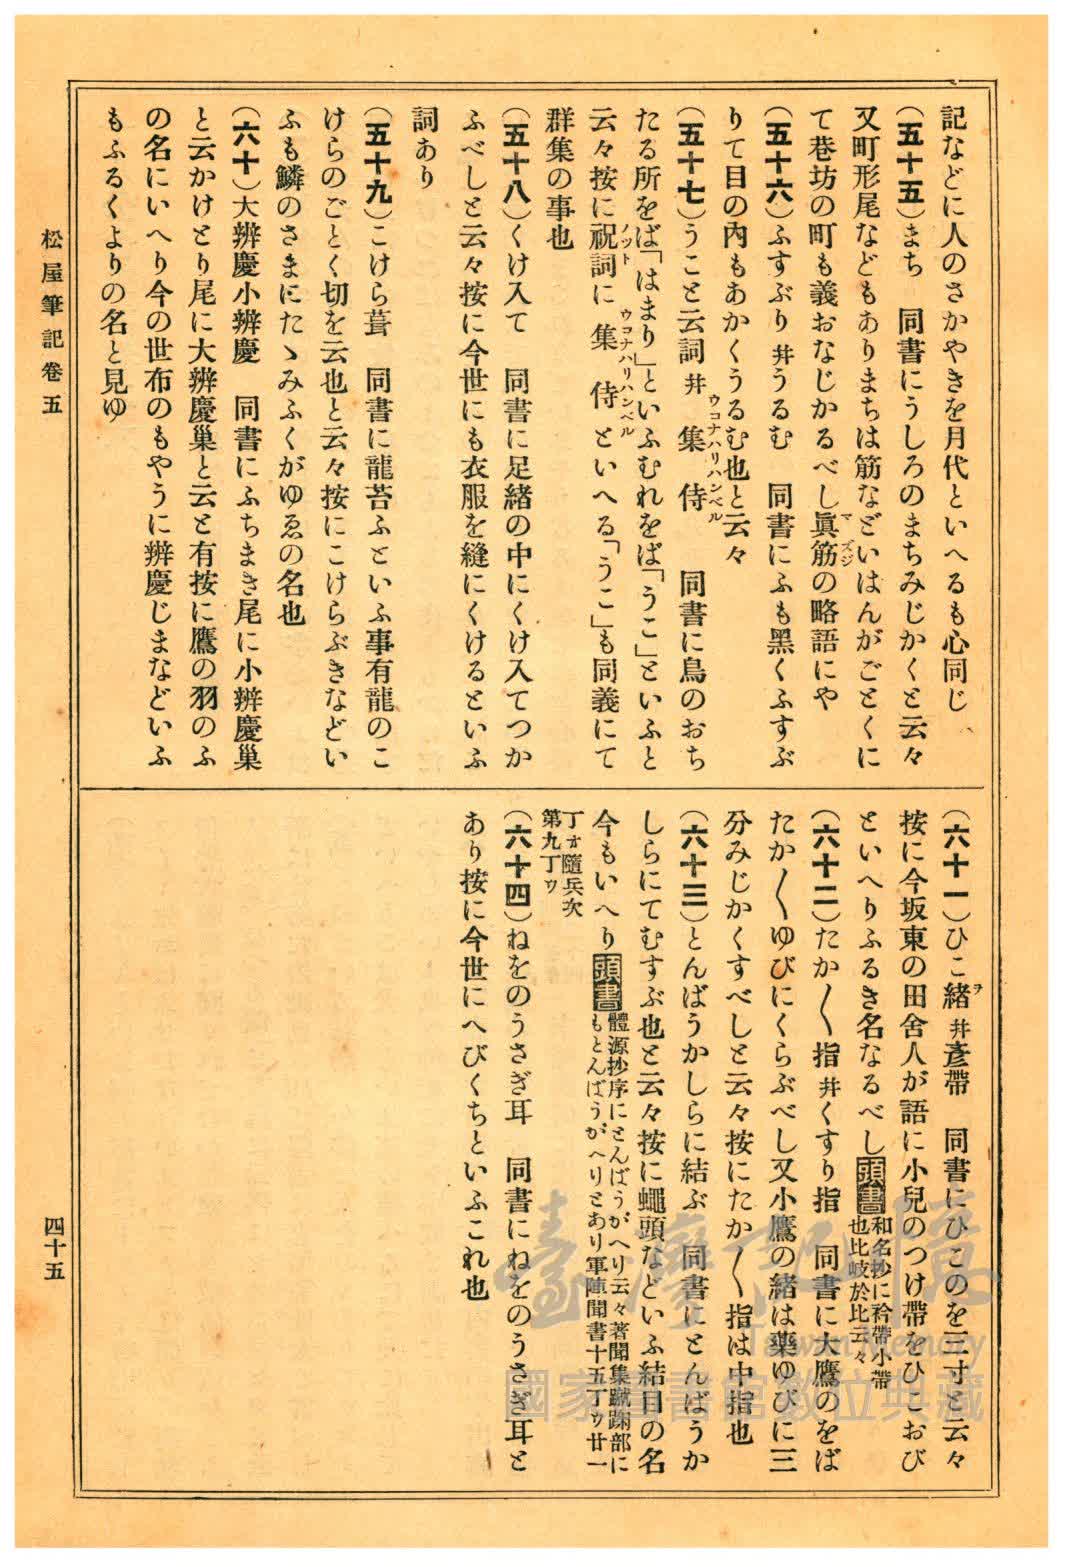 記などに人のさかやきを月代といへるも心同じ
(五十五)まち　同書にうしろのまちみじかくと云々
又町形尾などもありまちは筋などいはんがごとくに
て巷坊の町も義おなじかるべし眞筋の略語にや
マズジ
(五十六)ふすぶり幷うるむ　同書にふも黑くふすぶ
りて目の內もあかくうるむ也と云々
(五十七)うこと云詞幷集侍　同書に鳥のおち
ウコナハリハンベル
たる所をば「はまり」といふむれをば「うこ」といふと
云々按に祝詞に集侍といへる「うこ」も同義にて
ノット　ウコナハリハンベル
群集の事也
(五十八)くけ入て　同書に足緒の中にくけ入てつか
ふべしと云々按に今世にも衣服を縫にくけるといふ
詞あり
(五十九)こけら葺　同書に龍苔ふといふ事有龍のこ
けらのごとく切を云也と云々按にこけらぶきなどい
ふも鱗のさまにたゝみふくがゆゑの名也
(六十)大辨慶小辨慶　同書にふちまき尾に小辨慶巢
と云かけとり尾に大辨慶巢と云と有按に鷹の羽のふ
の名にいへり今の世布のもやうに辨慶じまなどいふ
もふるくよりの名と見ゆ
(六十一)ひこ緒幷彥帶　同書にひこのを三寸と云々
ヲ
按に今坂東の田舍人が語に小兒のつけ帶をひこおび
といへりふるき名なるべし頭書和名抄に衿帶小帶
也比岐於比云々
(六十二)たか〱指幷くすり指　同書に大鷹のをば
たか〱ゆびにくらぶべし又小鷹の緒は藥ゆびに三
分みじかくすべしと云々按にたか〱指は中指也
(六十三)とんばうかしらに結ぶ　同書にとんばうか
しらにてむすぶ也と云々按に蠅頭などいふ結目の名
今もいへり頭書體源抄序にとんばうがへり云々著聞集蹴踘部に
もとんばうがへりとあり軍陣聞書十五丁ウ廿一
丁オ隨兵次
第九丁ウ
(六十四)ねをのうさぎ耳　同書にねをのうさぎ耳と
あり按に今世にへびくちといふこれ也
松屋筆記卷五
四十五
臺灣記憶
Taiwan Memory
國家圖書館數位典藏